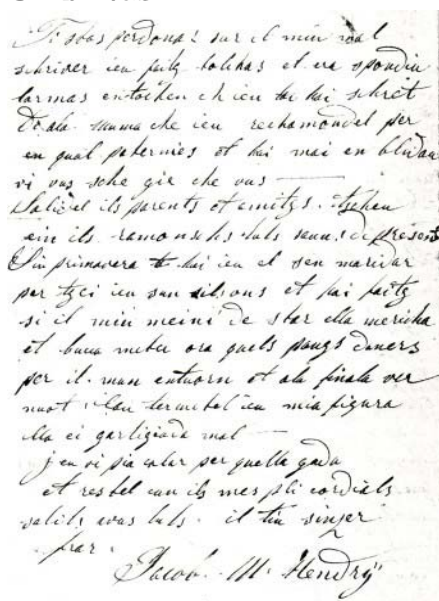 Ti stos perdonar sur il min mal
schriver ieu faitz tolchas et era spondiu
larmas entochen ch ieu tei hai schret
Do ala mumma che ieu rechamondel per
en qual paternies et hai mai en blidau
vi vus sche gie che vus
Salidel ils parents et amitzs. tscheu
ein ils ramonschs tuts sauns de present
Sin primavera hai ieu el sen maridar
per tzei ieu sun silsons et hai faitz
si il min meini de star ella mericha
et bucca metter ora quels paugs daners
per il mun entuorn et ala finala ver
nuot. Cau termettel ieu mia figura
ella ei gartigiada mal
Jeu vi pia calar per quella gada
et restel cun ils mes pli cordials
salids avus tuts. il tiu sinzer
frar.
Jacob. M. Hendry